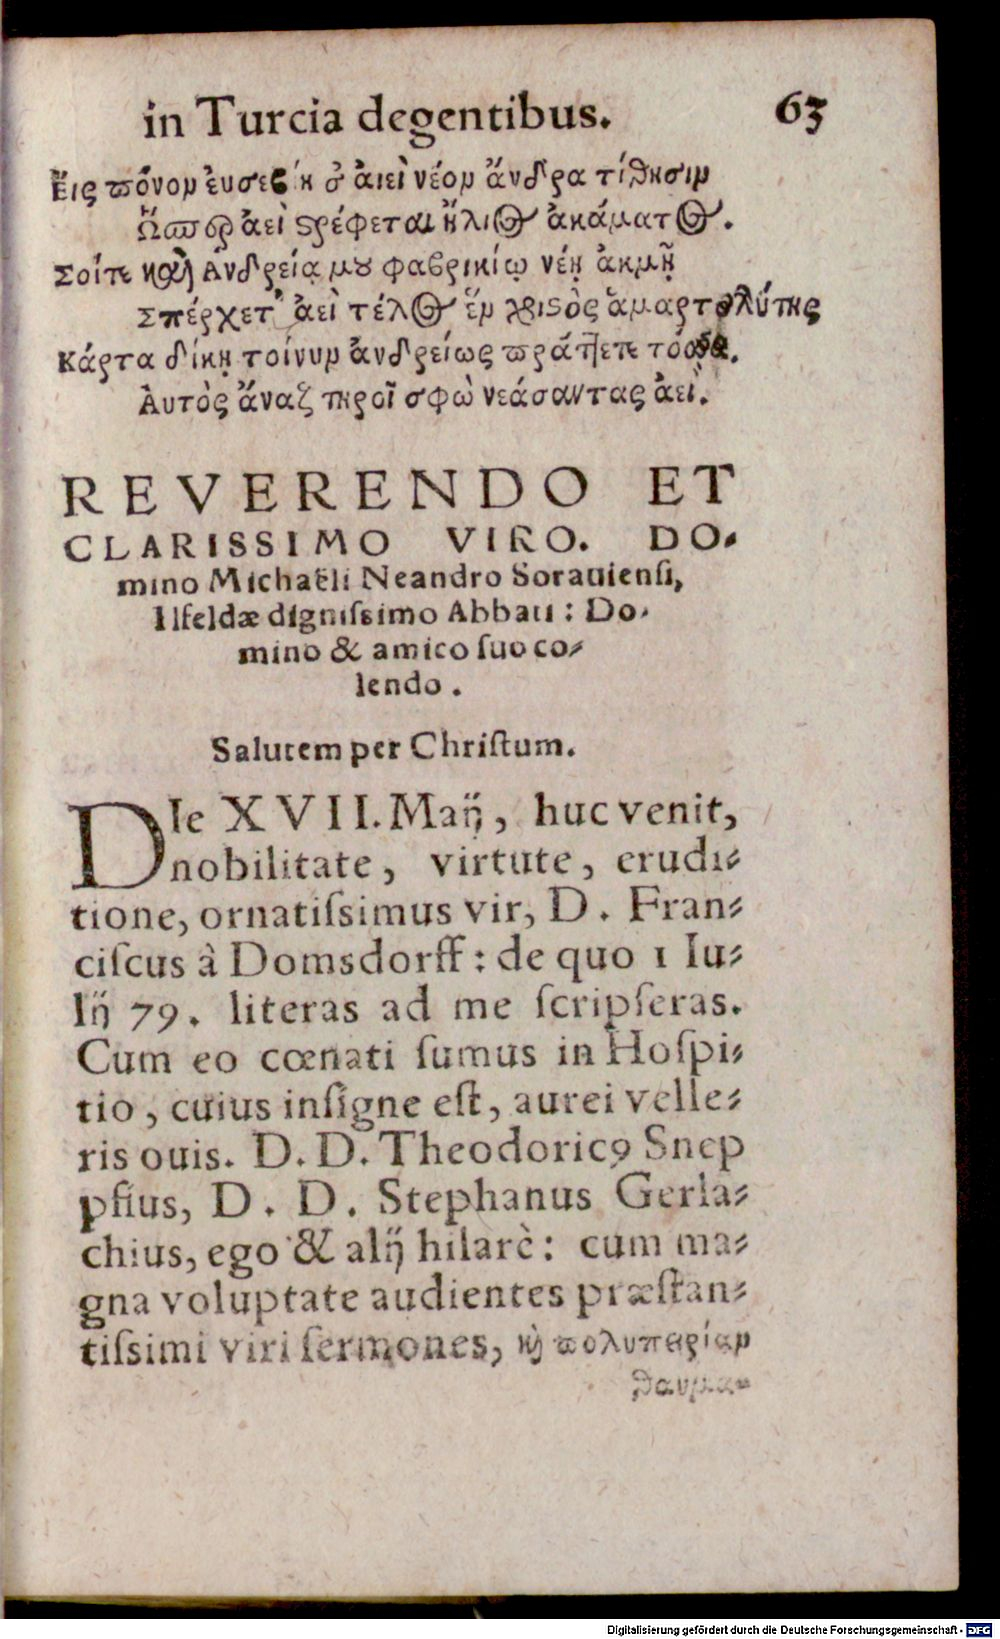 in Turcia degentibus. 63
Εἰς πόνον εὐσεβίη σ' αἰεὶ νέον ἄνδρα τίθησιν
Ὥσπερ ἀεὶ στρέφεται ἥλιος ἀκάματος.
Σοίτε καὶ Ἀνδρείᾳ μου φαβρικίῳ νέῃ ἀκμῇ
Σπέρχετ' ἀεὶ τέλος ἓν χριστὸς ἁμαρτολύτης
Κάρτα δίκῃ τοίνυν ἀνδρείως πράττετε
Αὐτὸς ἄναξ τηροῖ σφὼ νεάσαντας ἀεί.
REVERENDO ET
CLARISSIMO VIRO. DO-
mino Michaëli Neandro Sorauiensi,
Ilfeldæ digniſsimo Abbati: Do-
mino & amico ſuo co-
lendo.
Salutem per Chriſtum.
DIe XVII. Maij, huc venit,
nobilitate, virtute, erudi-
tione, ornatiſsimus vir, D. Fran-
ciſcus à Domsdorff: de quo 1 Iu-
lij 79. literas ad me ſcripſeras.
Cum eo cœnati ſumus in Hoſpi-
tio, cuius inſigne eſt, aurei velle-
ris ouis. D. D. Theodoricꝰ Snep
pfius, D. D. Stephanus Gerla-
chius, ego & alij hilarè: cum ma-
gna voluptate audientes præſtan-
tiſsimi viri ſermones, καὶ πολυπειρίαν
θαυμα-
Digitalisierung gefördert durch die Deutsche Forschungsgemeinschaft - DFG